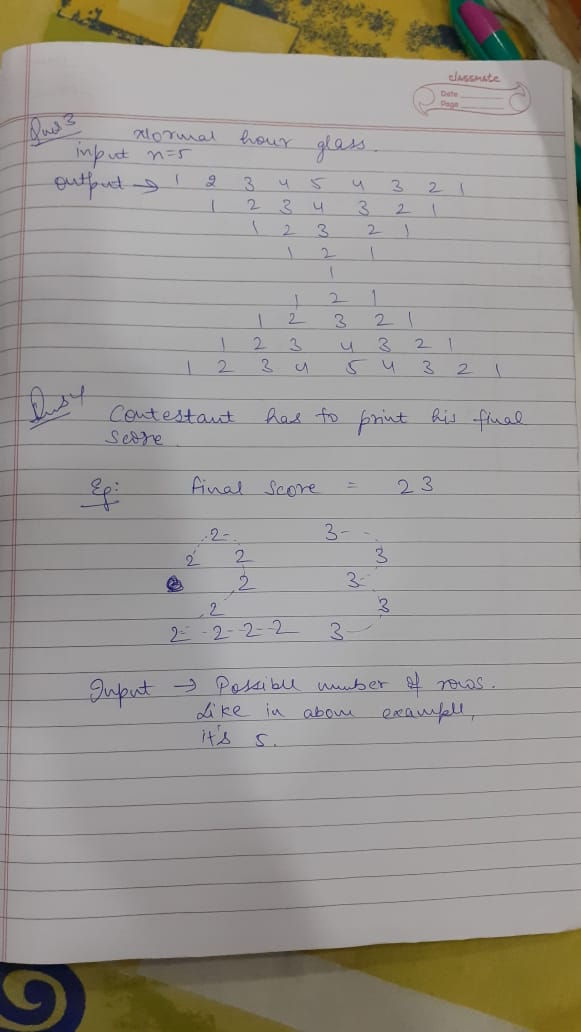 classmate
Date
Page
Ques 3 Normal hour glass.
input n=5
output → 1 2 3 4 5 4 3 2 1
1 2 3 4 3 2 1
1 2 3 2 1
1 2 1
1
1 2 1
1 2 3 2 1
1 2 3 4 3 2 1
1 2 3 4 5 4 3 2 1
Ques 4 Contestant has to print his final
score
Eg: final score = 23
2 3
2 2 3
2 3
2 3
2 2 2 2 3
Input → Possible number of rows.
Like in above example,
it's 5.